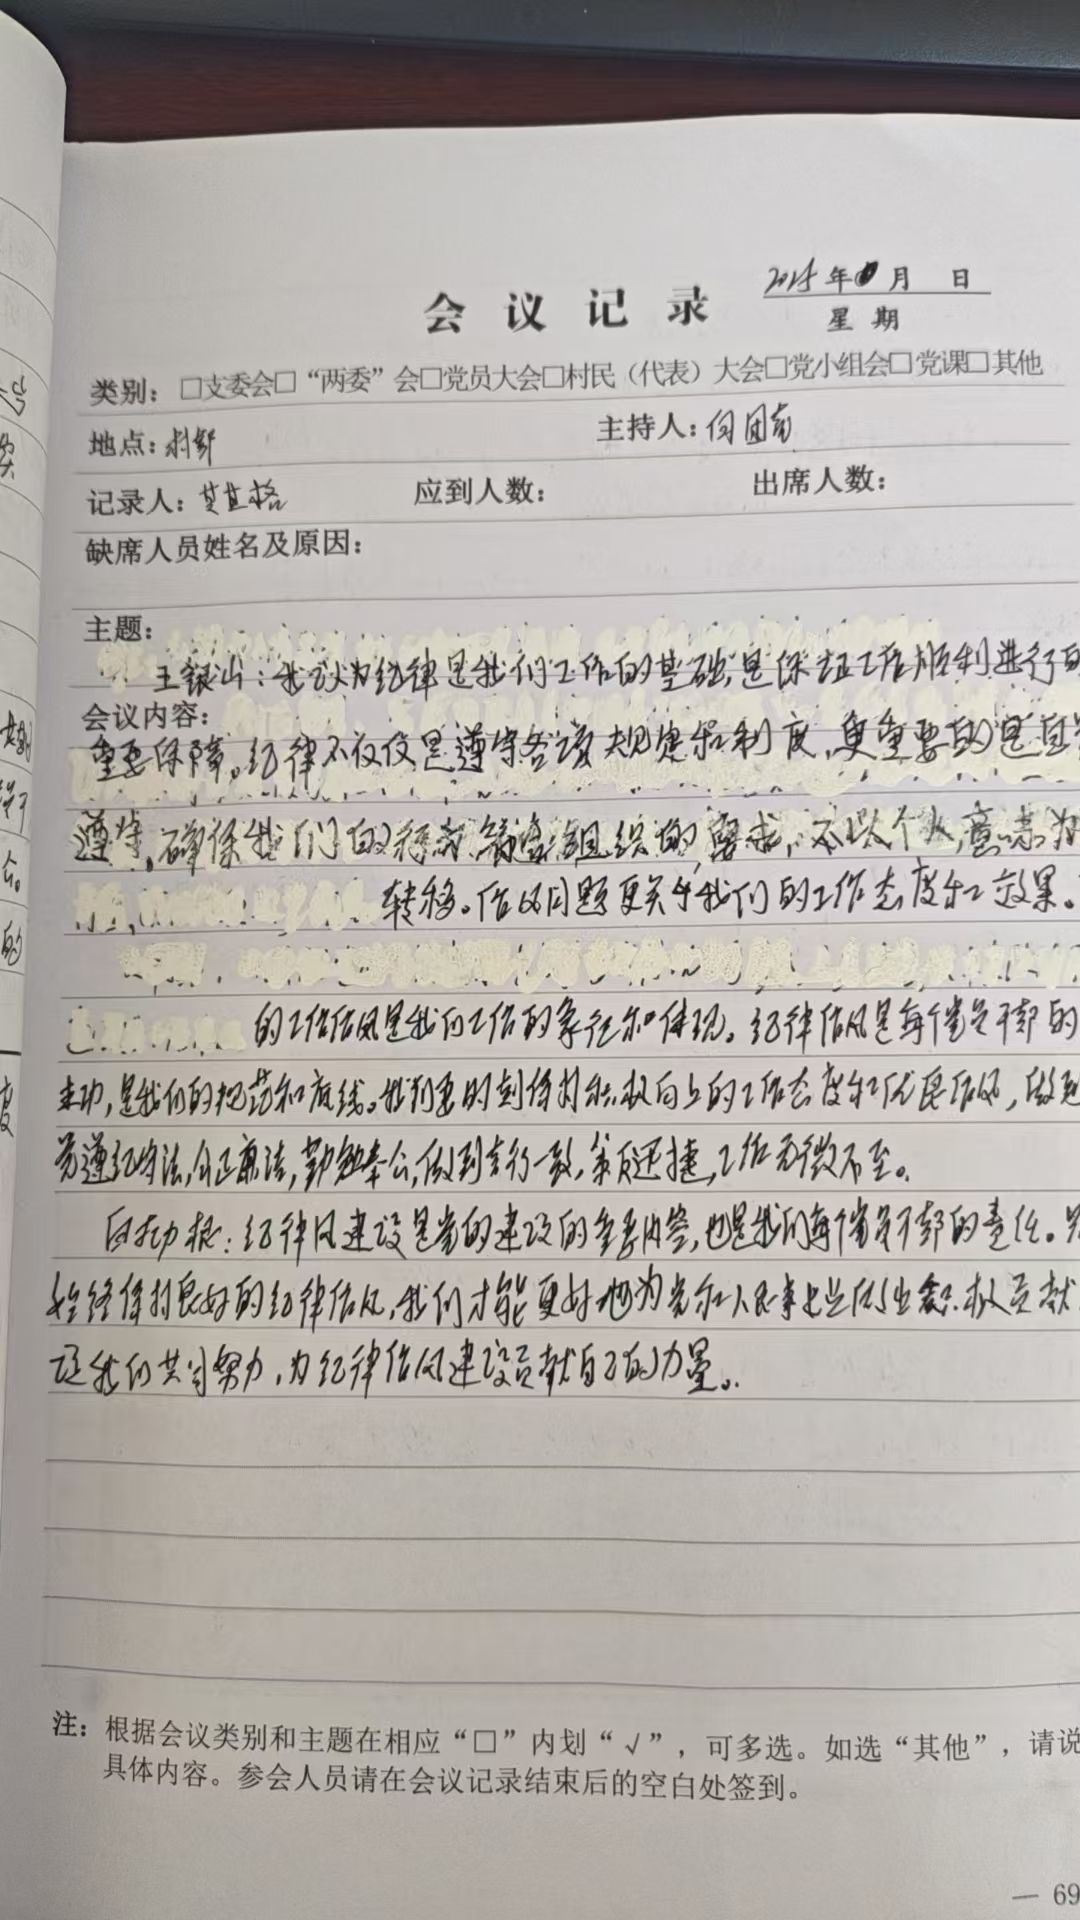 会议记录
2025年 月 日
星期
类别：□支委会□“两委”会□党员大会□村民（代表）大会□党小组会□党课□其他
地点：村部 主持人：何团有
记录人： 应到人数： 出席人数：
缺席人员姓名及原因：
主题：
王银山：我认为纪律是我们工作的基础，是保证工作顺利进行的
会议内容：
重要保障。纪律不仅仅是遵守各项规定和制度，更重要的是自觉
遵守。确保我们的行为符合组织的要求，不以个人意志为
转移。作风问题更关乎我们的工作态度和工效果。
的工作作风是我们工作的象征和体现。纪律作风是每个党员干部的
，是我们的规范和底线。我们要时刻保持积极向上的工作态度和优良作风，做到
遵纪守法，公正廉洁，勤勉奉公，做到言行一致，迅捷，工作无微不至。
：纪律风建设是党的建设的重要内容，也是我们每个党员干部的责任。只
始终保持良好的纪律作风，我们才能更好地为党和人民事业作出积极贡献
让我们共同努力，为纪律作风建设贡献自己的力量。
注：根据会议类别和主题在相应“□”内划“√”，可多选。如选“其他”，请说
具体内容。参会人员请在会议记录结束后的空白处签到。
— 69